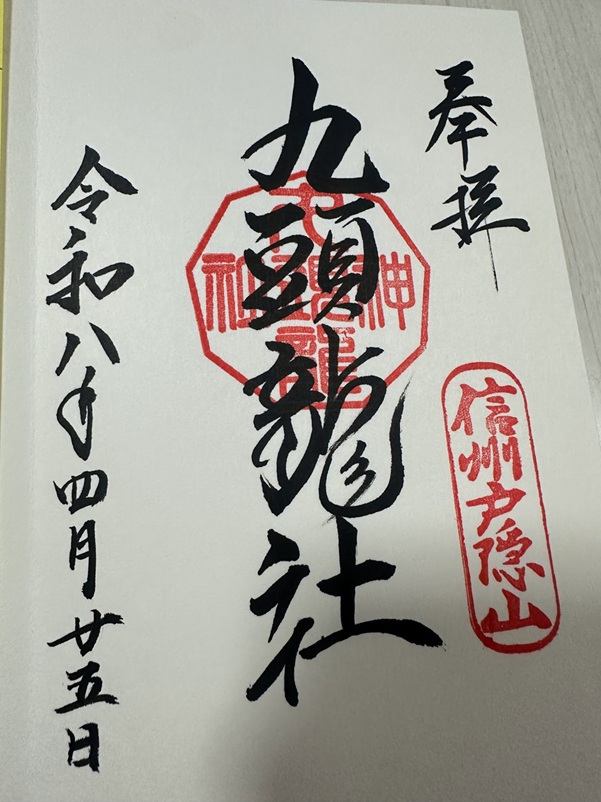 奉拝
信州戸隠山
九頭龍社
令和八年四月廿五日